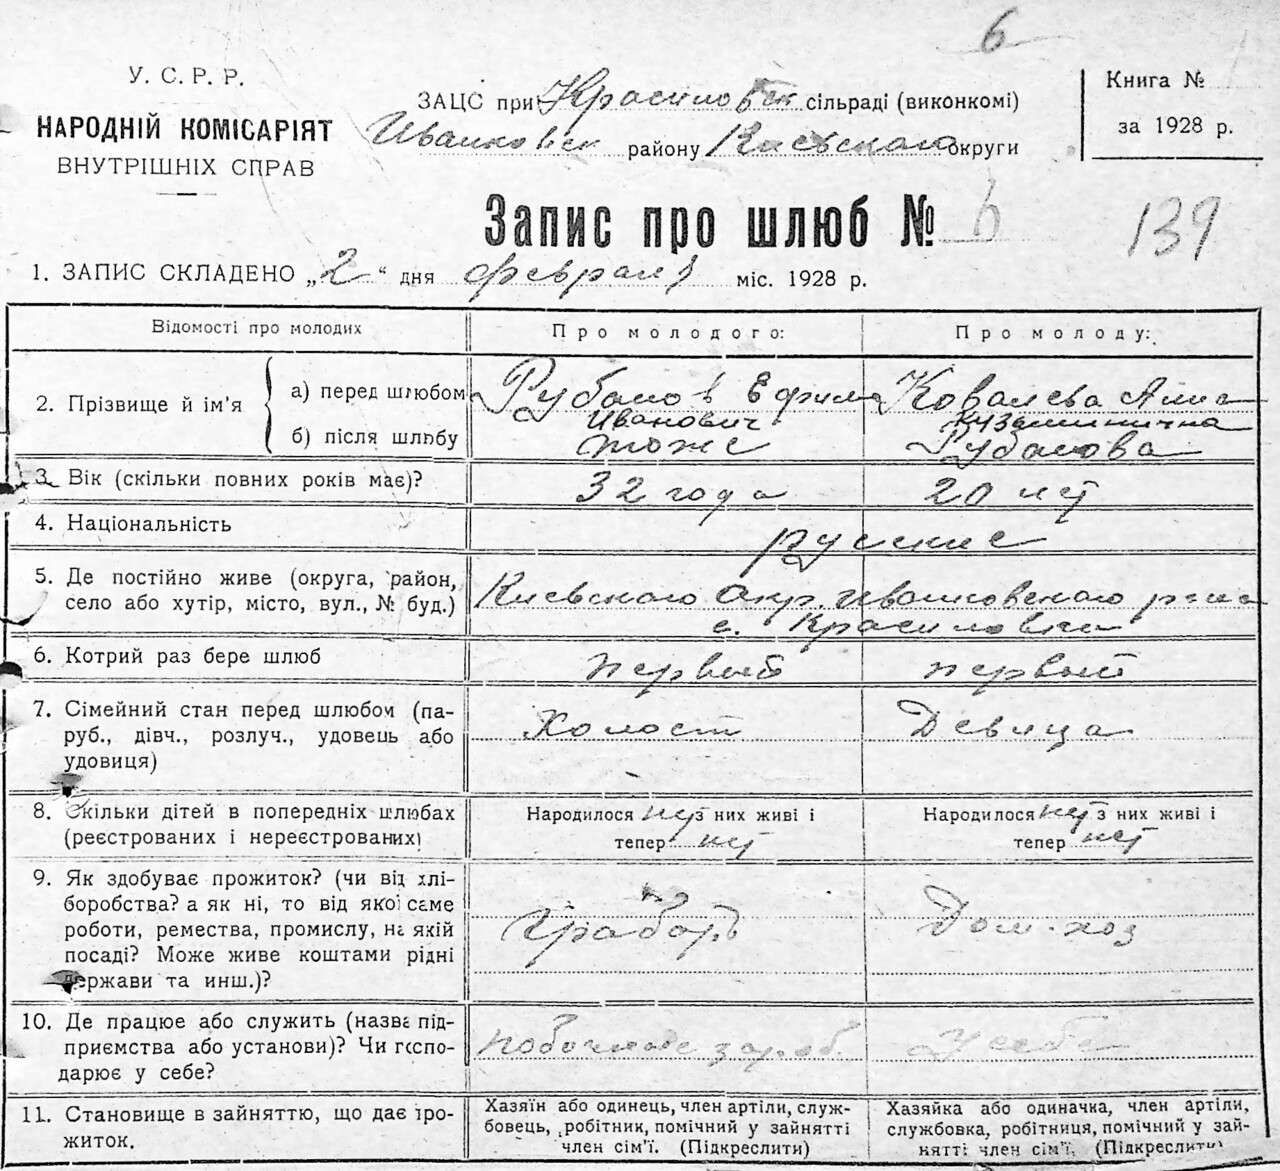 6
У. С. Р. Р.
НАРОДНІЙ КОМІСАРІЯТ
ВНУТРІШНІХ СПРАВ
ЗАЦС при Красиловск сільраді (виконкомі)
Иванковск району Киевской округи
Книга №
за 1928 р.
Запис про шлюб № 6
139
1. ЗАПИС СКЛАДЕНО „2" дня февраля міс. 1928 р.
Відомості про молодих
Про молодого:
Про молоду:
2. Прізвище й ім'я
а) перед шлюбом
б) після шлюбу
Рубанов Ефим
Иванович
тоже
Ковалева Анна
Кузьминична
Рубанова
3. Вік (скільки повних років має)?
32 года
20 лет
4. Національність
русские
5. Де постійно живе (округа, район,
село або хутір, місто, вул., № буд.)
Киевского Окр. Иванковского рена
с. Красиловка
6. Котрий раз бере шлюб
первый
первый
7. Сімейний стан перед шлюбом (па-
руб., дівч., розлуч., удовець або
удовиця)
Холост
Девица
8. Скільки дітей в попередніх шлюбах
(реєстрованих і нереєстрованих)
Народилося нет з них живі і
тепер нет
Народилося нет з них живі і
тепер нет
9. Як здобуває прожиток? (чи від хлі-
боробства? а як ні, то від якої саме
роботи, ремества, промислу, на якій
посаді? Може живе коштами рідні
держави та инш.)?
Грабарь
Дом-хоз
10. Де працює або служить (назва під-
приємства або установи)? Чи госпо-
дарює у себе?
побочные зараб.
У себе
11. Становище в зайняттю, що дає про-
житок.
Хазяїн або одинець, член артіли, служ-
бовець, робітник, помічний у зайнятті
член сім'ї. (Підкреслити)
Хазяйка або одиначка, член артіли,
службовка, робітниця, помічний у зай-
нятті член сім'ї. (Підкреслити)